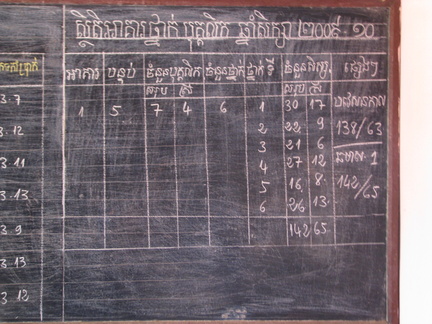 ស្ថិតិអាគារថ្នាក់ បុគ្គលិក ឆ្នាំសិក្សា ២០០៩-១០
អាគារ បន្ទប់ ចំនួនបុគ្គលិក ចំនួនថ្នាក់ ថ្នាក់ ទី ចំនួនសិស្ស ផ្សេងៗ
សរុប ស្រី សរុប ស្រី
1 5 7 4 6 1 30 17 បវេសនកាល
3.7
2 22 9 138/63
3.12
3 21 6
3.11 4 27 12 ឆមាស 1
3.13 5 16 8 142/65
6 26 13
3 9 142/65
3.13
3 12